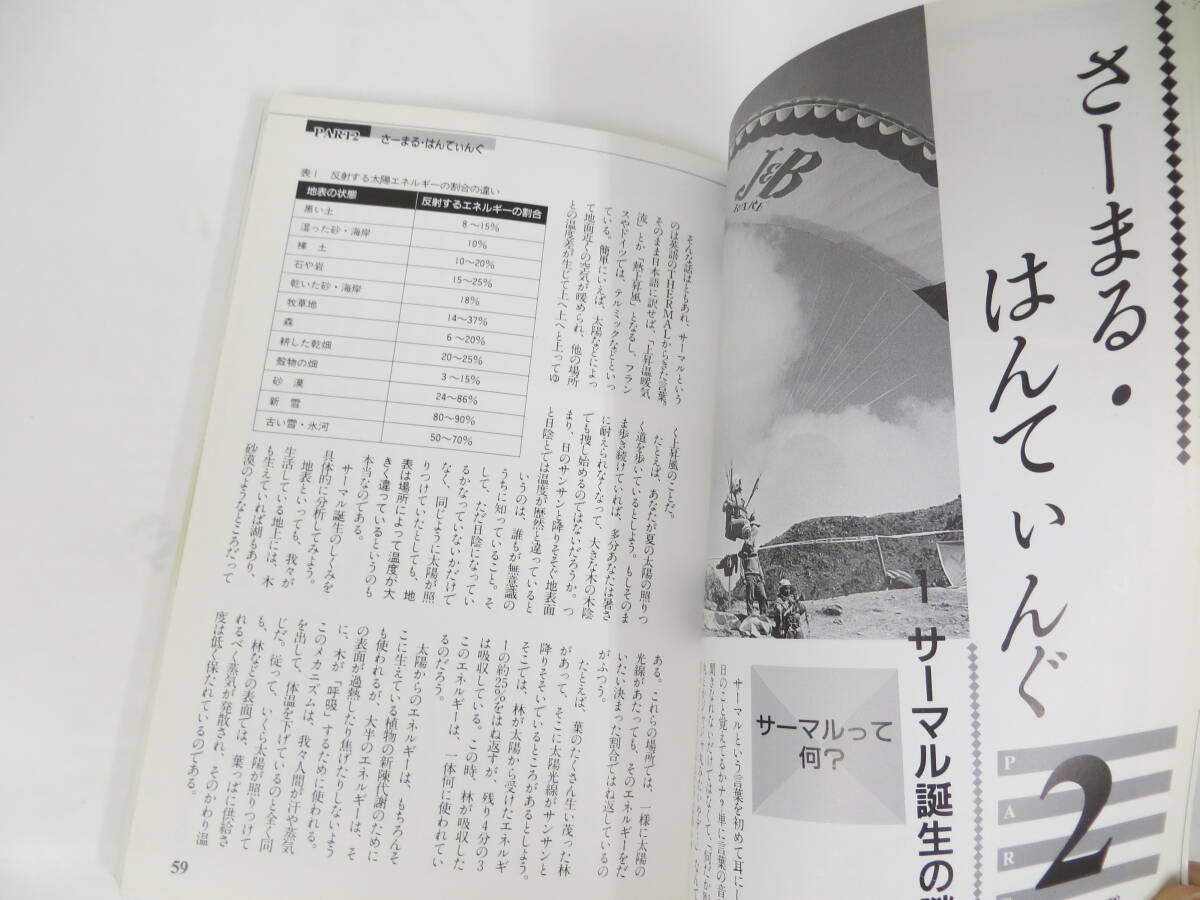 さーまる・
はんてぃんぐ
PAR
2
J&B
RARE
1 サーマル誕生の
サーマルって
何?
サーマルという言葉を初めて耳にし
PART2 さーまる・はんてぃんぐ
表1 反射する太陽エネルギーの割合の違い
地表の状態 反射するエネルギーの割合
黒い土 8〜15%
湿った砂・海岸 10%
裸土 10〜20%
石や岩 15〜25%
乾いた砂・海岸 18%
牧草地 14〜37%
森 6〜20%
耕した乾畑 20〜25%
穀物の畑 3〜15%
砂漠 24〜86%
新雪 80〜90%
古い雪・氷河 50〜70%
そんな話はともあれ、サーマルという
のは英語のTHERMALからきた言葉。
そのまま日本語に訳せば、「上昇温暖気
流」とか「熱上昇風」となるし、フラン
スやドイツでは、テルミックなどといっ
ている。簡単にいえば、太陽などによっ
て地面近くの空気が暖められ、他の場所
との温度差が生じて上へ上へと上ってゆ
く上昇風のことだ。
たとえば、あなたが夏の太陽の照りつ
く道を歩いているとしよう。もしそのま
ま歩き続けていれば、多分あなたは暑さ
に耐えられなくなって、大きな木の木陰
でも捜し始めるのではないだろうか。つ
まり、日のサンサンと降りそそぐ地表面
と日陰とでは温度が歴然と違っていると
いうのは、誰もが無意識の
うちに知っていること。そ
して、ただ日陰になってい
るかなっていないかだけで
なく、同じように太陽が照
りつけていたとしても、地
表は場所によって温度が大
きく違っているというのも
本当なのである。
サーマル誕生のしくみを
具体的に分析してみよう。
地表といっても、我々が
生活している地上には、木
も生えていれば湖もあり、
砂漠のようなところだって
ある。これらの場所では、一様に太陽の
光線があたっても、そのエネルギーをだ
いたい決まった割合ではね返しているの
がふつう。
たとえば、葉のたくさん生い茂った林
があって、そこに太陽光線がサンサンと
降りそそいでいるところがあるとしよう。
そこでは、林が太陽から受けたエネルギ
ーの約25%をはね返すが、残り4分の3
は吸収している。この時、林が吸収した
このエネルギーは、一体何に使われてい
るのだろう。
太陽からのエネルギーは、もちろんそ
こに生えている植物の新陳代謝のために
も使われるが、大半のエネルギーは、そ
の表面が過熱したり焦げたりしないよう
に、木が「呼吸」するために使われる。
このメカニズムは、我々人間が汗や蒸気
を出して、体温を下げているのと全く同
じだ。従って、いくら太陽が照りつけて
も、林などの表面では、葉っぱに供給さ
れるべく蒸気が発散され、そのかわり温
度は低く保たれているのである。
59